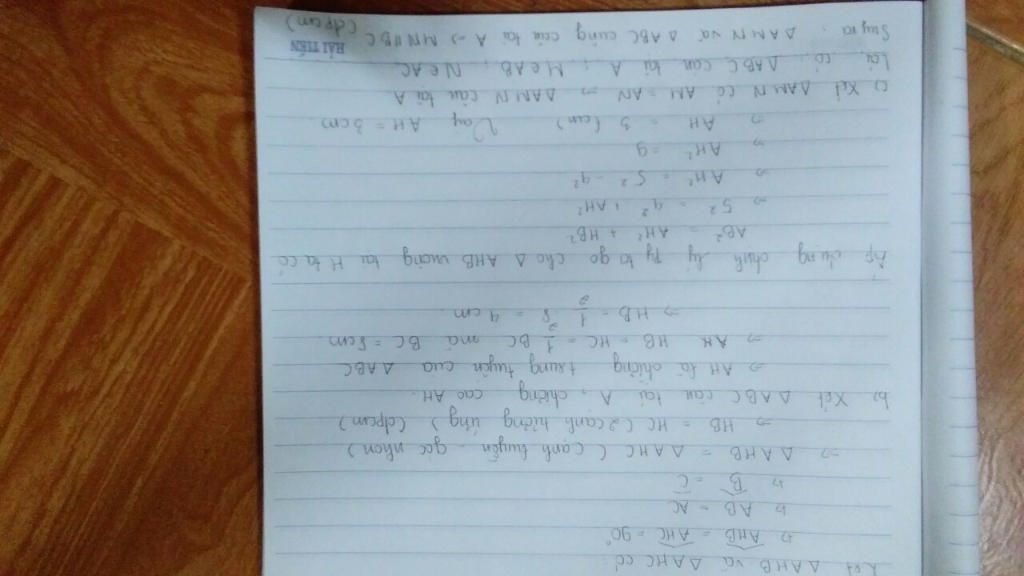 Xét Δ AHB và Δ AHC có:
▷ AHB = AHC = 90°
▷ AB = AC
▷ B = C
⇒ Δ AHB = Δ AHC ( cạnh huyền - góc nhọn )
⇒ HB = HC ( 2 cạnh tương ứng ) (đpcm)
b, Xét Δ ABC cân tại A, đường cao AH.
⇒ AH là đường trung tuyến của Δ ABC
⇒ HB = HC = 1/2 BC mà BC = 8cm.
⇒ HB = 1/2 8 = 4 cm.
Áp dụng định lý Py ta go cho Δ AHB vuông tại H ta có
AB² = AH² + HB²
⇒ 5² = 4² + AH²
⇒ AH² = 5² - 4²
⇒ AH² = 9
⇒ AH = 3 (cm) Vậy AH = 3cm.
c) Xét Δ AMN có AM = AN ⇒ Δ AMN cân tại A
Lại có: Δ ABC cân tại A ; M ∈ AB ; N ∈ AC
Suy ra: Δ AMN và Δ ABC cùng cân tại A ⇒ MN // BC (đpcm)
HẢI TIẾN